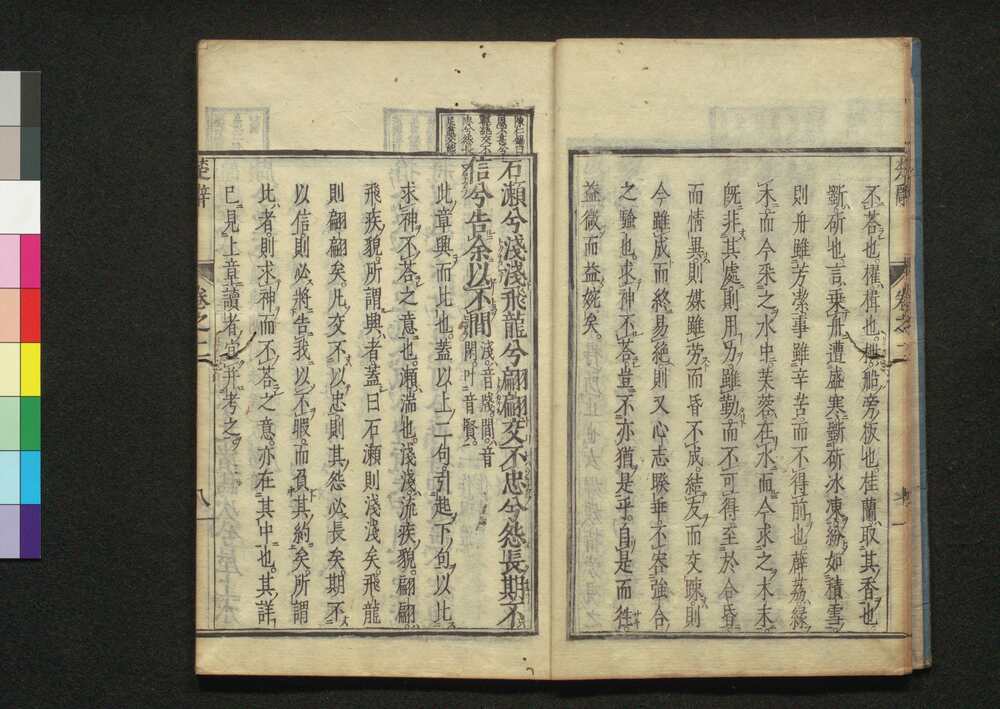 不荅也。櫂楫也。枻船旁板也桂蘭取其香也
斵斫也。言乘舟遭盛寒斵斫冰凍紛如積雪
則舟雖芳潔事雖辛苦而不得前也薜荔緣
木而今采之水中芙蓉在水而今求之木末
旣非其處則用力雖勤而不可得至於合昏
而情異則媒雖勞而昏不成結友而交疎則
今雖成而終易絕則又心志睽乖不容強合
之驗也求神不荅豈不亦猶是乎自是而往
益微而益婉矣
楚辭
卷之二
石瀨兮淺淺飛龍兮翩翩交不忠兮怨長期不
信兮告余以不閒
淺音牋。閒音
閑叶音賢。
此章興而比也。蓋以上二句引起下句以比
求神不荅之意也瀨湍也。淺淺流疾貌翩翩
飛疾貌所謂興者蓋曰石瀨則淺淺矣飛龍
則翩翩矣凡交不以忠則其怨必長矣期不
以信則必將告我以不暇而負其約矣所謂
比者則求神而不荅之意亦在其中也其詳
已見上章讀者宜并考之
楚辭
卷之二
八